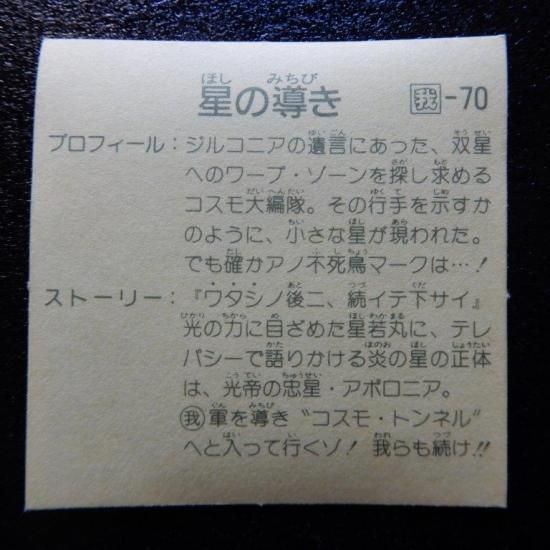 星の導き 我-70
プロフィール：ジルコニアの遺言にあった、双星
へのワープ・ゾーンを探し求める
コスモ大編隊。その行手を示すか
のように、小さな星が現われた。
でも確かアノ不死鳥マークは…！
ストーリー：『ワタシノ後ニ、続イテ下サイ』
光の力に目ざめた星若丸に、テレ
パシーで語りかける炎の星の正体
は、光帝の忠星・アポロニア。
我軍を導き“コスモ・トンネル”
へと入って行くゾ！ 我らも続け!!